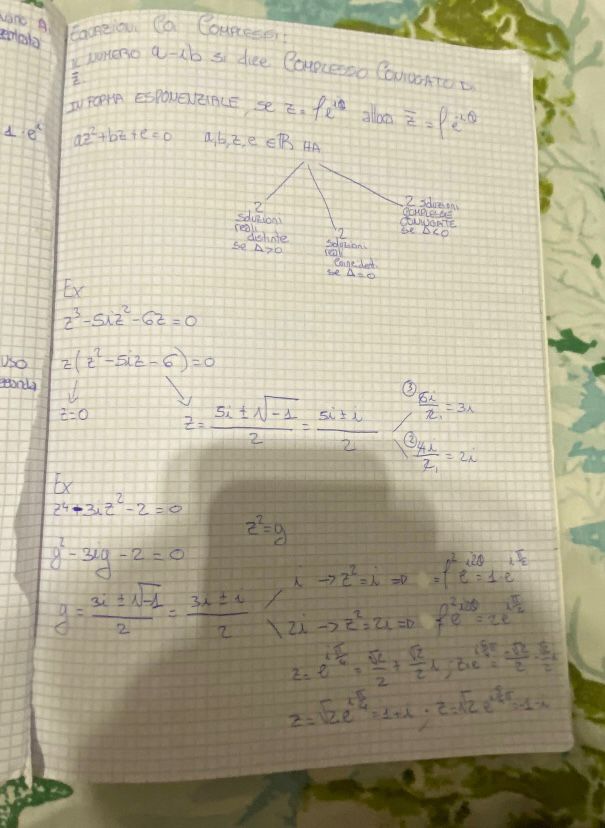 EQUAZIONI COI COMPLESSI:
IL NUMERO a-ib si dice COMPLESSO CONIUGATO DI
z̄.
IN FORMA ESPONENZIALE, se z = ρe^{iθ} allora z̄ = ρe^{-iθ}
1·e^i
az²+bz+c=0 a,b,z,c ∈ ℝ HA
2 soluzioni reali distinte se Δ>0
2 soluzioni reali coincidenti se Δ=0
2 soluzioni COMPLESSE CONIUGATE se Δ<0
Ex
z³-5iz²-6z=0
z(z²-5iz-6)=0
z=0
z= (5i ± √-1)/2 = (5i ± i)/2
③ 6i/2 = 3i
② 4i/2 = 2i
Ex
z⁴-3iz²-2=0
z²=y
y²-3iy-2=0
y = (3i ± √-1)/2 = (3i ± i)/2
i → z²=i ⇒ ρ²e^{i2θ} = 1·e^{iπ/2}
2i → z²=2i ⇒ ρ²e^{i2θ} = 2e^{iπ/2}
z = e^{iπ/4} = √2/2 + √2/2 i ;
z = √2 e^{iπ/4} = 1+i ; z = √2 e^{i5/4π} = -1-i